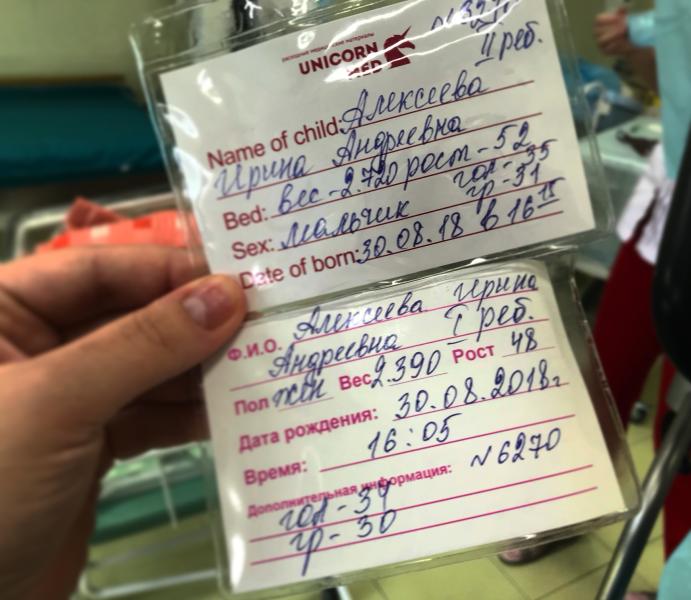 расходные медицинские материалы
UNICORN
MED
II реб.
Name of child: Алексеева
Ирина Андреевна
Bed: вес - 2.720 рост - 52
гол - 35
Sex: мальчик гр - 31
Date of born: 30.08.18 в 16 15
Ф.И.О. Алексеева Ирина
Андреевна I реб.
Пол жен Вес 2.390 Рост 48
Дата рождения: 30.08.2018г
Время: 16:05
Дополнительная информация: N6270
гол - 34
гр - 30